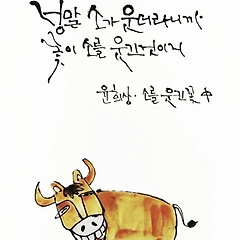 정말 소가 웃더라니까
꽃이 소를 웃긴것이지
윤희상 · 소를 웃긴꽃 中